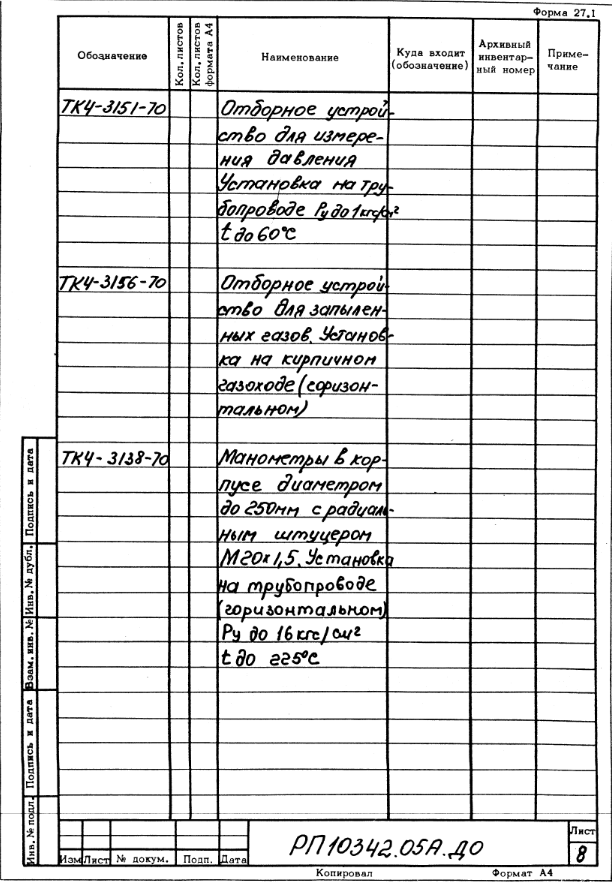 Форма 27.1
Обозначение
Кол. листов
Кол. листов формата А4
Наименование
Куда входит (обозначение)
Архивный инвентарный номер
Примечание
ТК4-3151-70
Отборное устрой-
ство для измере-
ния давления
Установка на тру-
бопроводе Ру до 1кгс/см²
t до 60°С
ТК4-3156-70
Отборное устрой-
ство для запылен-
ных газов. Установ-
ка на кирпичном
газоходе (горизон-
тальном)
ТК4-3138-70
Манометры в кор-
пусе диаметром
до 250мм с радиаль-
ным штуцером
М20×1,5. Установка
на трубопроводе
(горизонтальном)
Ру до 16 кгс/см²
t до 225°С
Подпись и дата
Инв. № дубл.
Взам. инв. №
Подпись и дата
Инв. № подл.
Изм Лист № докум. Подп. Дата
РП10342.05А.Д0
Лист
8
Копировал
Формат А4